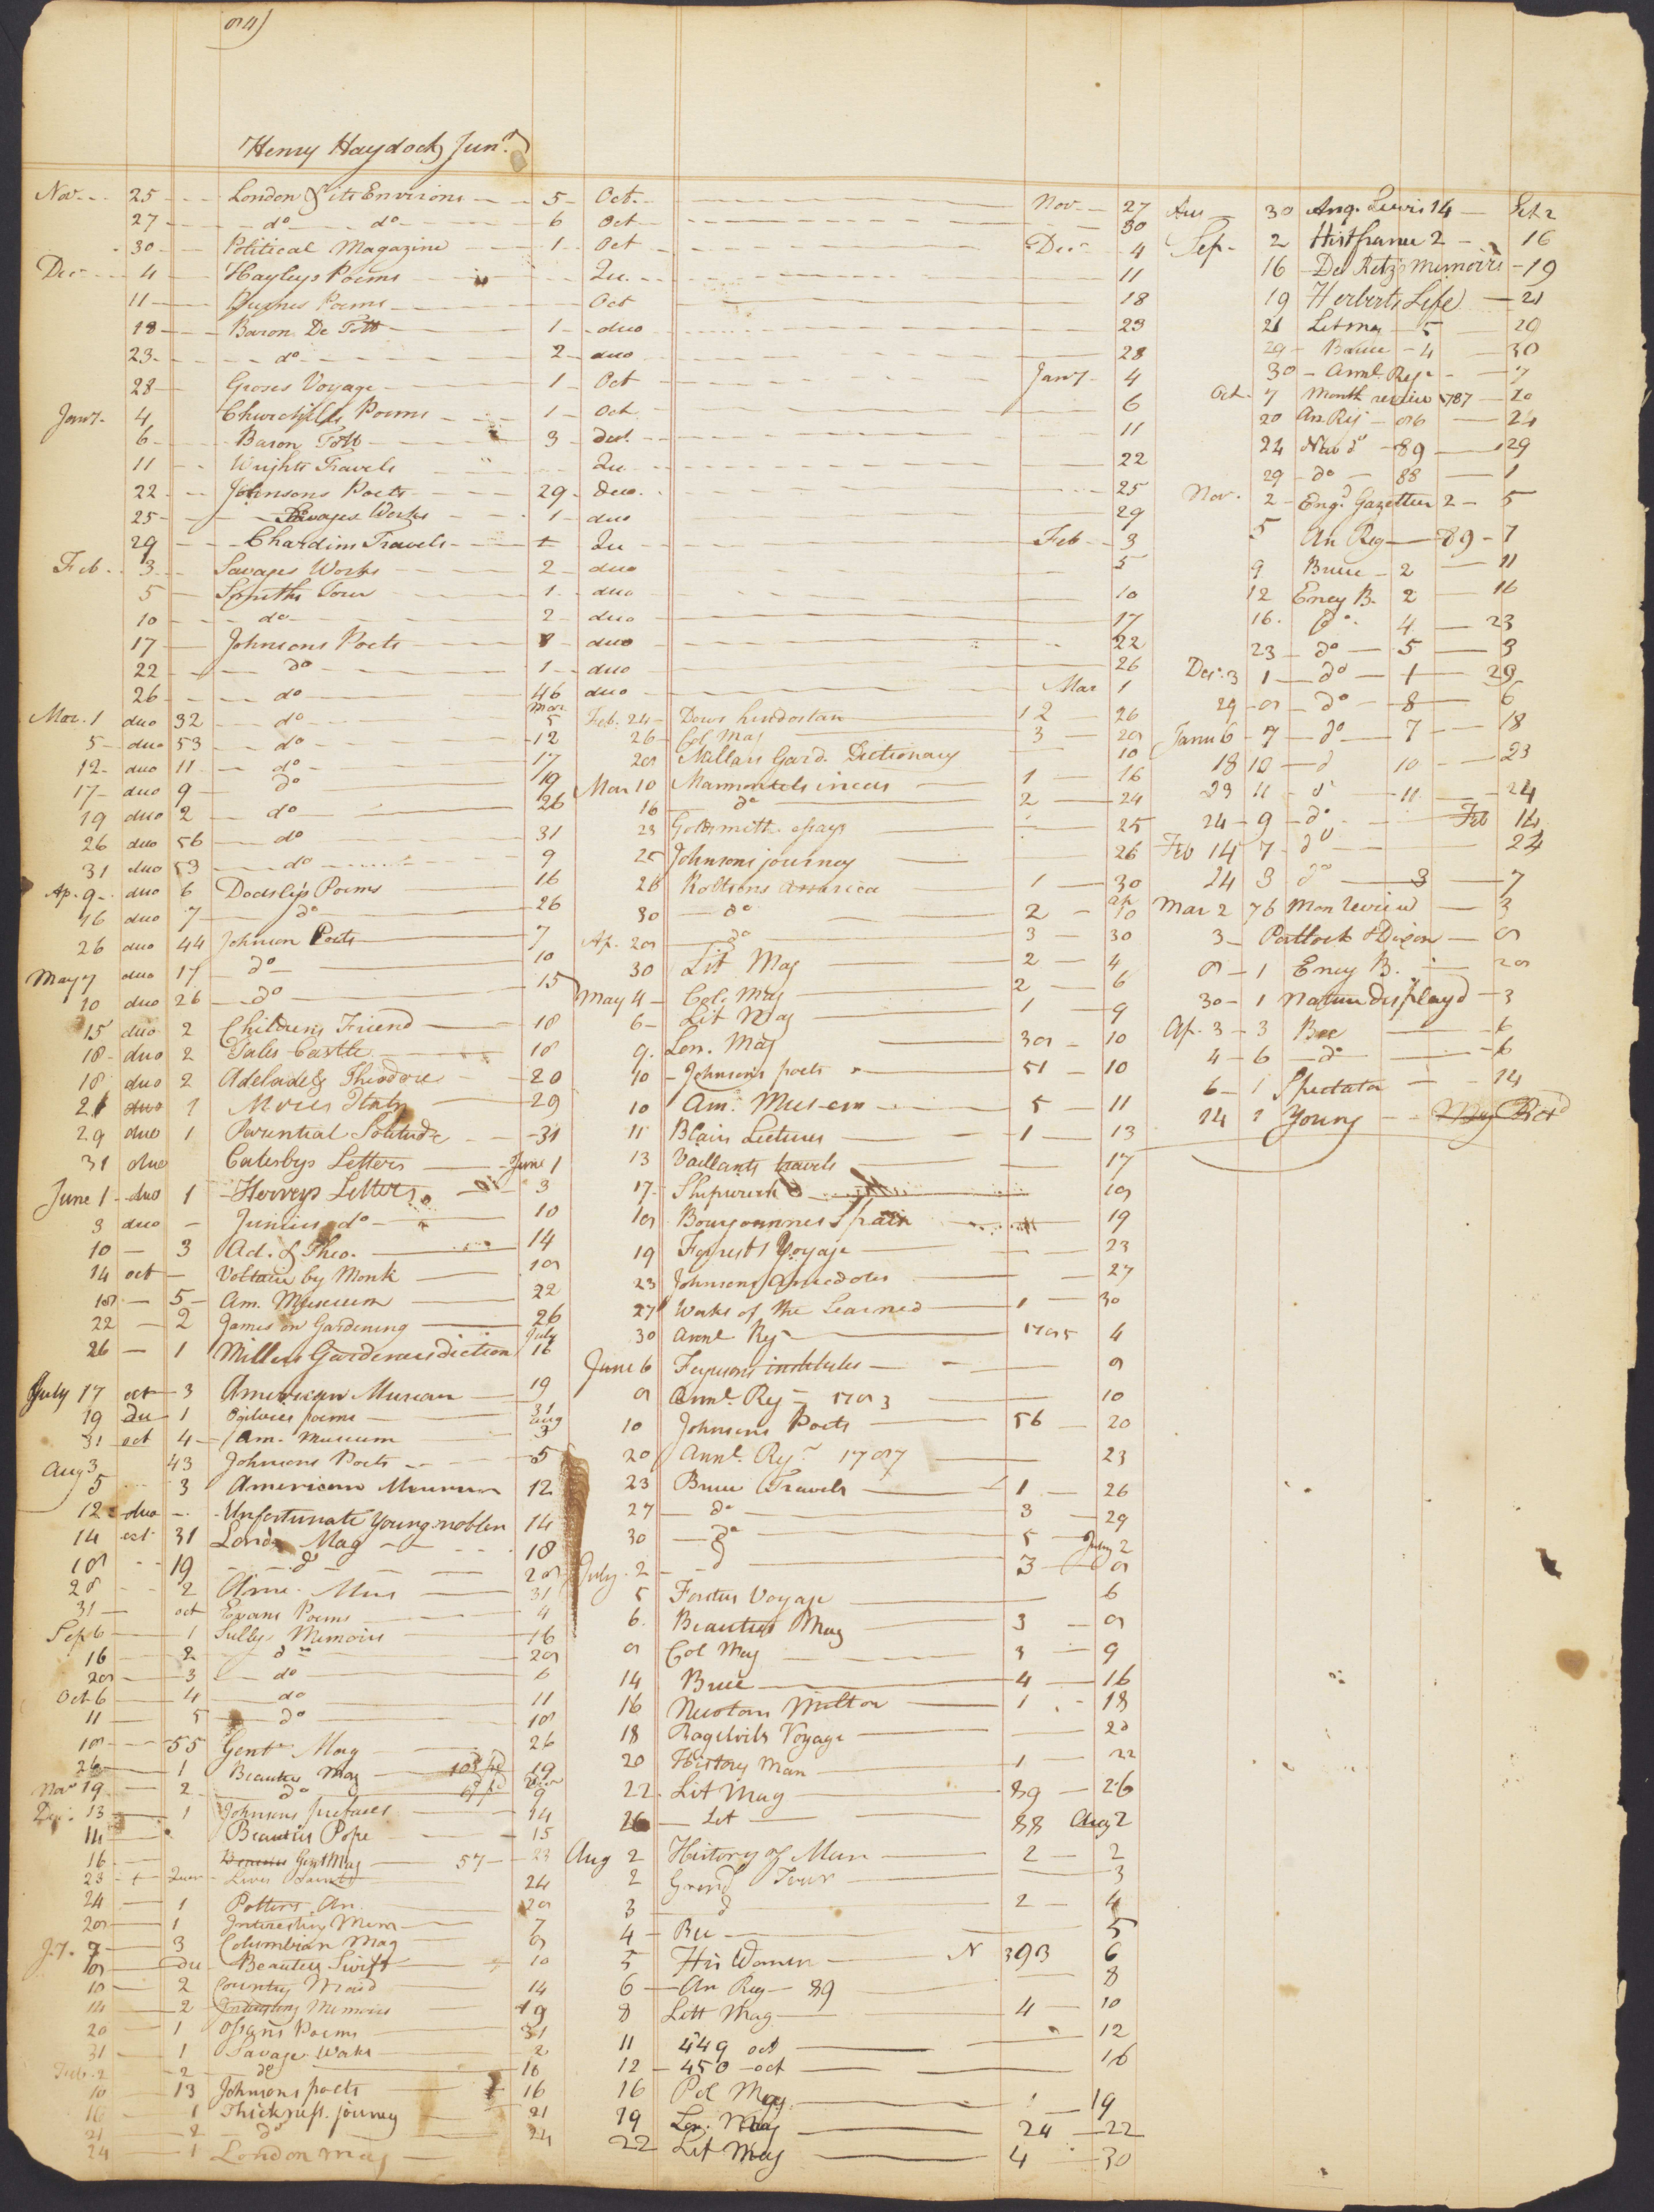 Henry Haydock Junr.
Nov. 25 London & its Environs 5 Oct. Nov 27
27 do do 6 Oct 30
30 Political Magazine 1 Oct Decr 4
Decr 4 Hayleys Poems Qu. 11
11 Poems Oct 18
18 Baron De Tott 1 duo 23
23 do 2 duo 28
28 Groses Voyage 1 Oct Jany 4
Jany 4 Churchills Poems 1 Oct 6
6 Baron Tott 3 duo. 11
11 Wrights Travels Qu. 22
22 Johnsons Poets 29 duo. 25
25 Savages Works 1 duo 29
29 Chardins Travels Qu Feb 3
Feb 3 Savages Works 2 duo 5
5 Smiths Tour 1 duo 10
10 do 2 duo 17
17 Johnsons Poets 8 duo 22
22 do 1 duo 26
26 do 46 duo Mar 1
Mar. 1 duo 32 do Mar 5
5 duo 53 do 12
12 duo 11 do 17
17 duo 9 do 19
19 duo 2 do 26
26 duo 56 do 31
31 duo 53 do 9
Ap. 9 duo 6 Dodsleys Poems 16
16 duo 7 do 26
26 duo 44 Johnson Poets 7
May 7 duo 17 do 10
10 duo 26 do 15
15 duo 2 Childrens Friend 18
18 duo 2 Tales Castle 18
18 duo 2 Adelade & Theodore 20
21 duo 1 Mores Italy 29
29 duo 1 Parential Solitude 31
31 duo Catesbys Letters June 1
June 1 duo 1 Herveys Letters 3
3 duo Junius do 10
10 3 Ad. & Theo. 14
14 oct Voltaire by Monk 18
18 5 Am. Museum 22
22 2 James on Gardening 26
26 1 Millers Gardeners diction July 16
July 17 oct 3 American Museum 19
19 du 1 Ogilvies poems 31
31 oct 4 Am. Museum Aug 3
Aug 3 43 Johnsons Poets 5
5 3 American Museum 12
12 duo Unfortunate Young noblen 14
14 oct 31 Londn Mag 18
18 19 do 28
28 2 Ame. Mus 31
31 oct Evans Poems 4
Sep 6 1 Sullys Memoirs 16
16 2 do 28
28 3 do 6
Oct 6 4 do 11
11 5 do 18
18 55 Gentn Mag 26
26 1 Beauties Mag 19
Nov 19 2 do 9
Dec. 13 1 Johnsons prefaces 14
14 Beauties Pope 15
16 Gent Mag 57 23
23 Lives 24
24 1 Potters An. 28
28 1 Interesting Mem 7
Jy. 7 3 Columbian Mag 8
8 Du Beauties Swift 10
10 2 Country Maid 14
14 2 Memoirs 19
20 1 Ossians Poems 31
31 1 Savage Works 2
Feb. 2 2 do 10
10 13 Johnsons poets 16
16 1 Thickness. journey 21
21 2 do 24
24 1 London mag
Feb. 24 Dows hindostan 12 26
26 Col Mag 3 28
28 Millars Gard. Dictionary 10
Mar 10 Marmontels incas 1 16
16 do 2 24
23 Goldsmith essays 25
25 Johnsons journey 26
26 Robtsons America 1 30
30 do 2 ap 10
Ap. 28 do 3 30
30 Lit Mag 2 4
May 4 Col. Mag 2 6
6 Lit Mag 1 9
9. Lon. Mag 38 10
10 Johnsons poets 51 10
10 Am. Museum 5 11
11 Blairs Lectures 1 13
13 Vaillants travels 17
17 Shipwreck 18
18 Bourgoannes Spain 19
19 Forrests Voyage 23
23 Johnsons Anecdotes 27
27 Works of the Learned 1 30
30 Annl Regr 1785 4
June 6 Fergusons institutes 8
8 Annl. Reg 1783 10
10 Johnsons Poets 56 20
20 Annl. Regr 1787 23
23 Bruce Travels 1 26
27 do 3 29
30 do 5 July 2
July 2 do 3 8
5 Fosters Voyage 6
6. Beauties Mag 3 8
8 Col Mag 3 9
14 Bruce 4 16
16 Newtons Milton 1 18
18 Voyage 20
20 History Man 1 22
22 Lit Mag 89 26
26 Lit 88 Aug 2
Aug 2 History of Man 2 2
2 Grand Tour 3
3 d 2 4
4 Bee 5
5 His Women N 393 6
6 An Reg 89 8
8 Litt Mag 4 10
11 449 oct 12
12 450 oct 16
16 Pol Mag. 1 19
19 Lon. Mag 24 22
22 Lit Mag 4 30
Aus 30 Ang. Lewis 14 Set 2
Sep. 2 Hist france 2 16
16 De Retz memoirs 19
19 Herberts Life 21
21 Lit mag 5 29
29 Bruce 4 30
30 Annl. Regr 7
Oct. 7 Month review 1787 20
20 An Reg 86 24
24 New do 89 29
29 do 88 1
Nov. 2 Engd Gazetteer 2 5
5 An Reg 89 7
9 Bruce 2 11
12 Ency B. 2 16
16. do. 4 23
23 do 5 3
Dec. 3 1 do 1 29
29 8 do 8 6
Janu 6 7 do 7 18
18 10 d 10 23
23 11 d 11 24
24 9 do Feb 14
Feb 14 7 do 24
24 3 do 3 7
Mar 2 76 Mon review 3
3 Portlock & Dixon 8
8 1 Ency B. 28
30 1 Nature displayd 3
Ap. 3 3 Bee 6
4 6 do 6
6 1 Spectator 14
14 1 Young